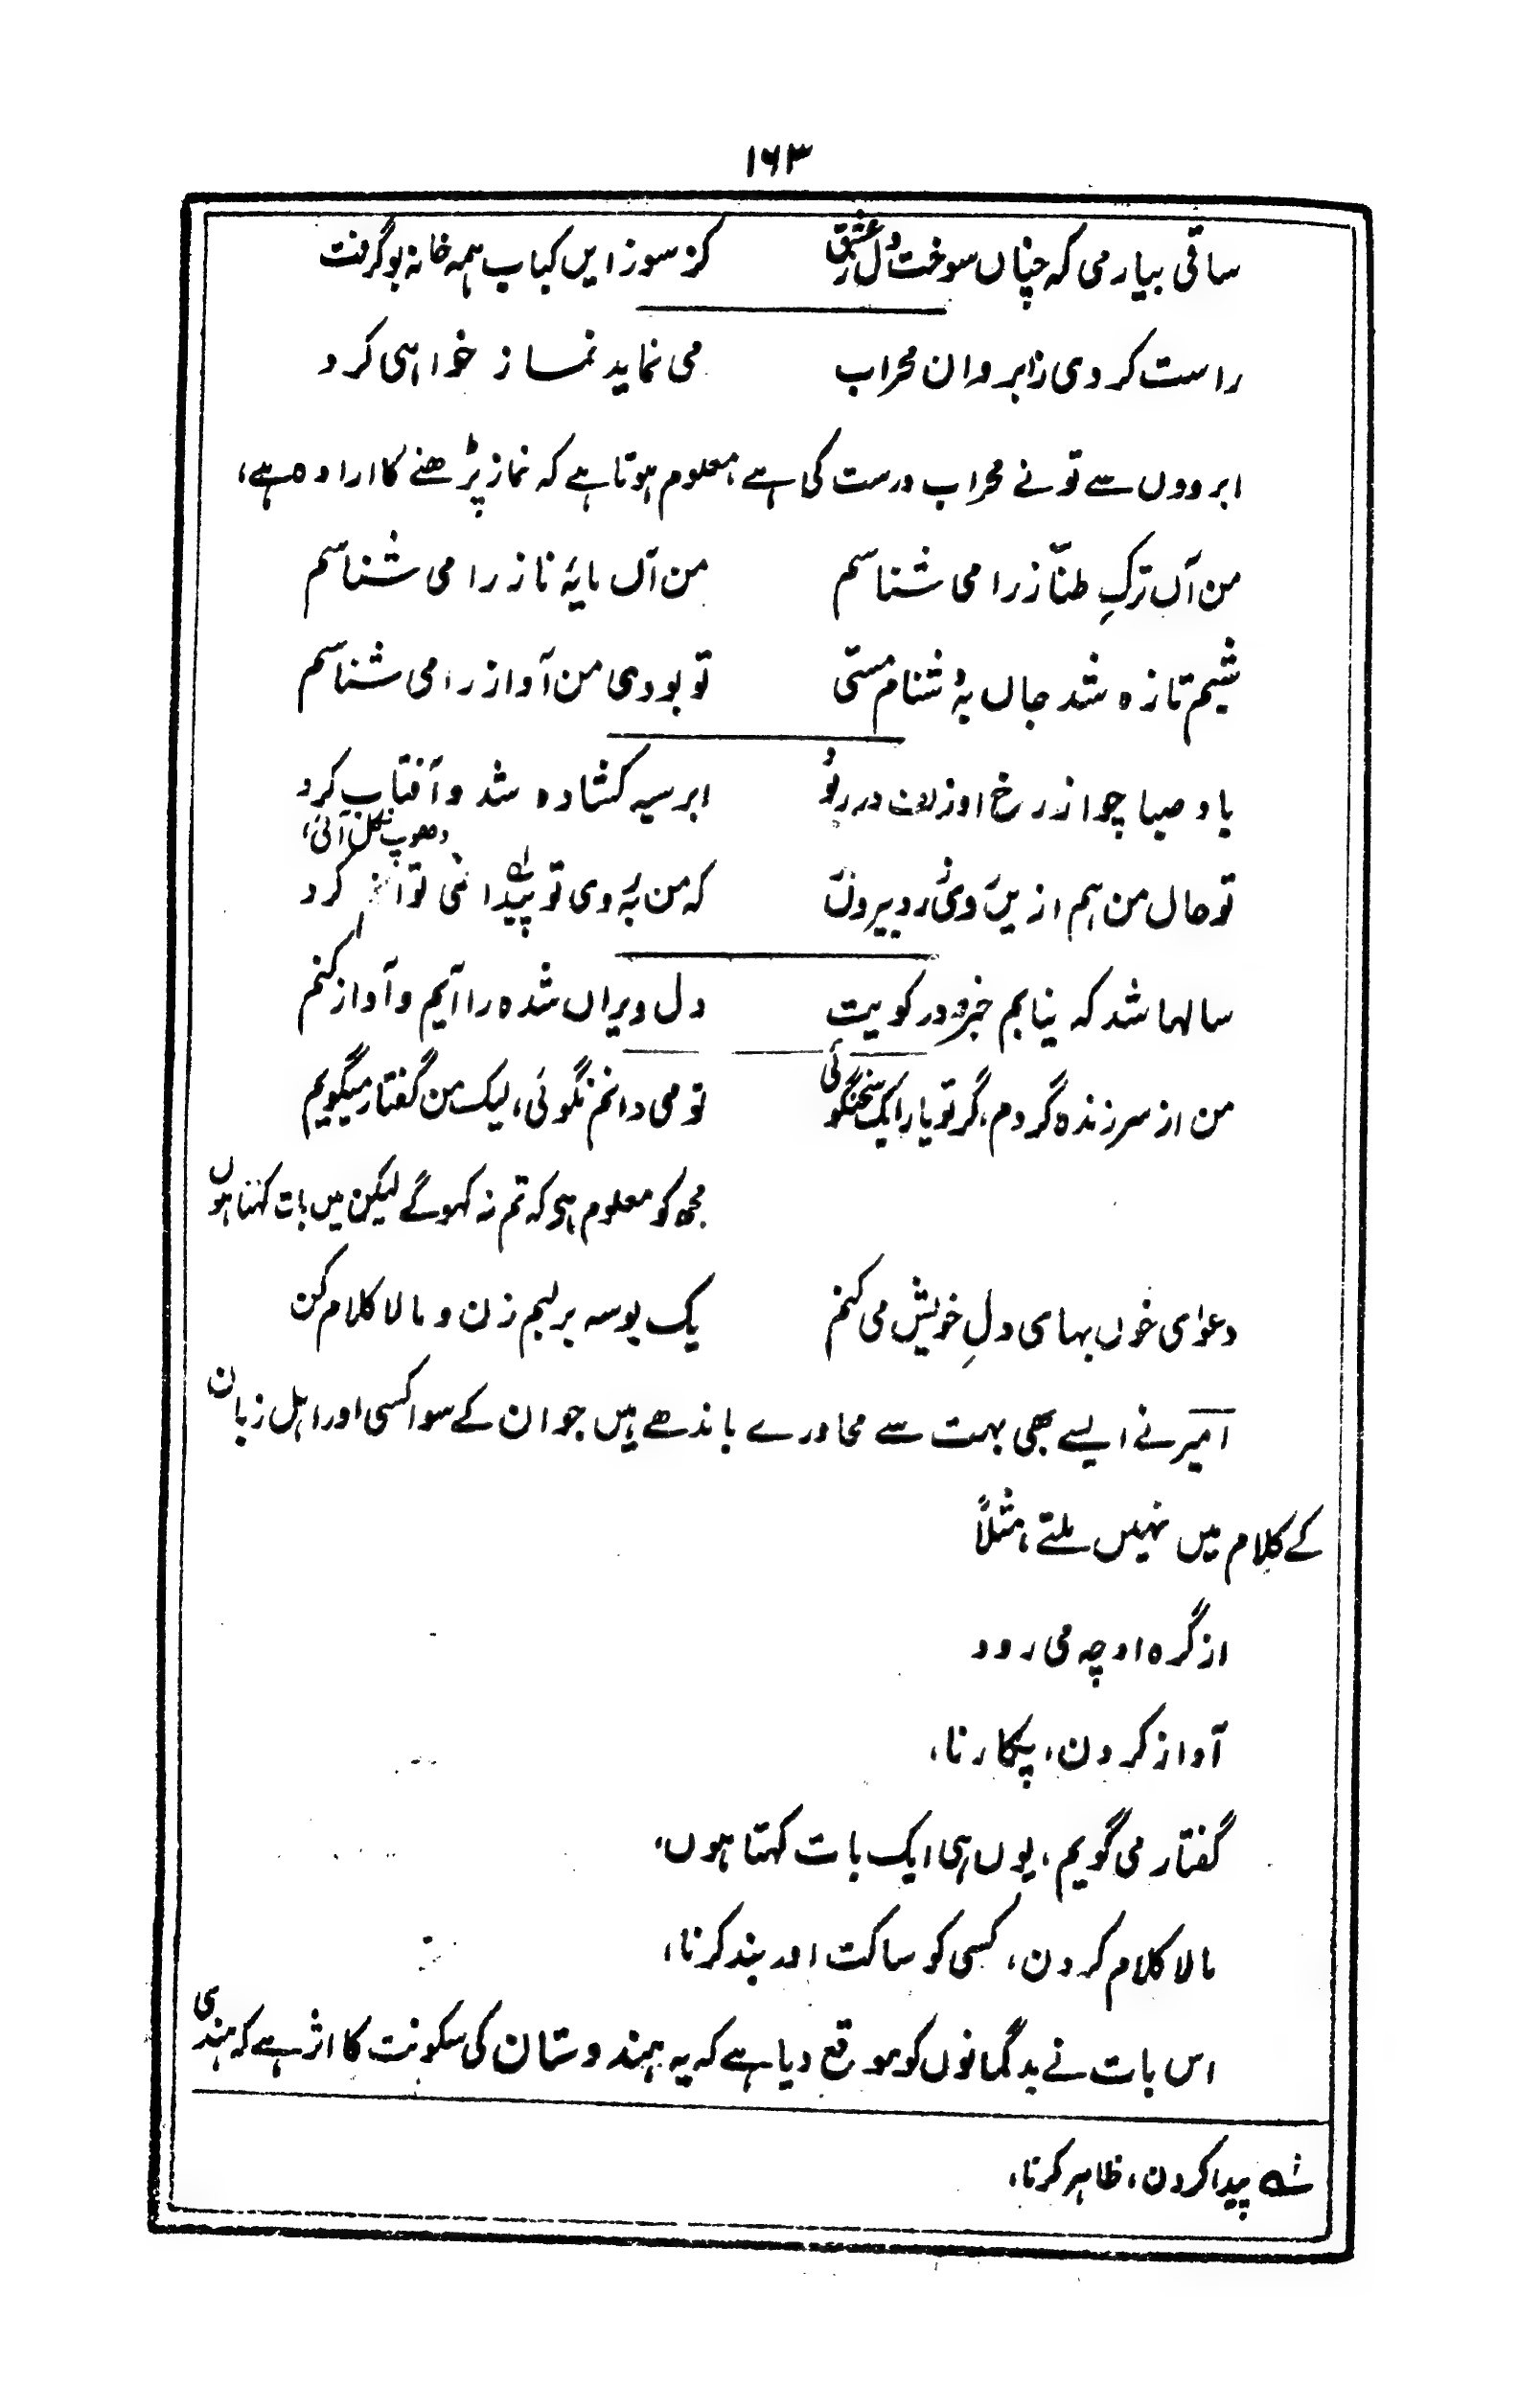 ۱۶۳
ساقی بیار می کہ چناں سوخت دل ز عشق کز سوز ایں کباب ہمہ خانہ بو گرفت
راست کردی ز ابروان محراب می نماید نماز خواہی کرد
ابرووں سے تو نے محراب درست کی ہے، معلوم ہوتا ہے کہ نماز پڑھنے کا ارادہ ہے،
من آں ترکِ طنّاز را می شناسم من آں مایۂ ناز را می شناسم
شبیم تازہ شد جاں بہ دشنام مستی تو بودی من آواز را می شناسم
باد صبا چو از رخ او زلف در ربود ابر سیہ کشادہ شد و آفتاب کرد
دھوپ نکل آئی،
تو حال من ہم ازیں روی زرد بیروں کہ من بہ روی تو پیدا نمی توانم کرد
سالہا شد کہ نیابم خبر و در کویت دل ویراں شدہ را آیم و آواز کنم
من از سر زندہ گردم، گر تو یارا یک سخن گوئی تو می دانم نگوئی، لیک من گفتار میگویم
مجھ کو معلوم ہی کہ تم نہ کہو گے لیکن میں بات کہتا ہوں
دعوای خوں بہای دلِ خویش می کنم یک بوسہ بر لبم زن و مالا کلام کن
امیر نے ایسے بھی بہت سے محاورے باندھے ہیں جو ان کے سوا کسی اور اہل زبان
کے کلام میں نہیں ملتے، مثلاً
از گرہ او چہ می رود
آواز کردن، پکارنا،
گفتار می گویم، یوں ہی ایک بات کہتا ہوں،
مالا کلام کردن، کسی کو ساکت اور بند کرنا،
اس بات نے بدگمانوں کو موقع دیا ہے کہ یہ ہندوستان کی سکونت کا اثر ہے کہ ہندی
پیدا کردن، ظاہر کرنا،